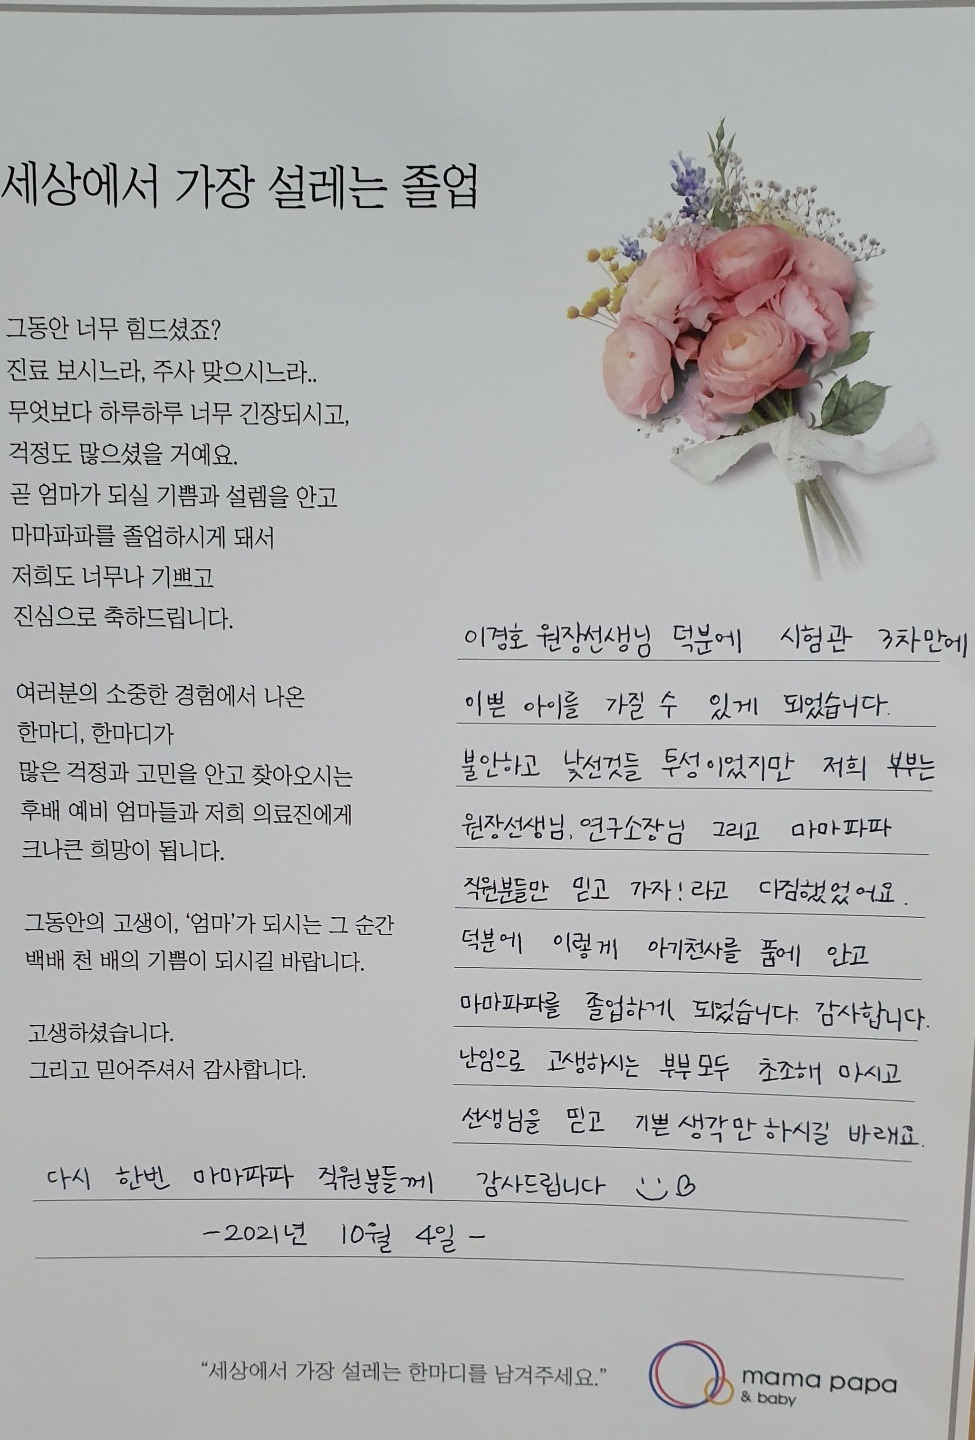 세상에서 가장 설레는 졸업
그동안 너무 힘드셨죠?
진료 보시느라, 주사 맞으시느라..
무엇보다 하루하루 너무 긴장되시고,
걱정도 많으셨을 거예요.
곧 엄마가 되실 기쁨과 설렘을 안고
마마파파를 졸업하시게 돼서
저희도 너무나 기쁘고
진심으로 축하드립니다.
여러분의 소중한 경험에서 나온
한마디, 한마디가
많은 걱정과 고민을 안고 찾아오시는
후배 예비 엄마들과 저희 의료진에게
크나큰 희망이 됩니다.
그동안의 고생이, ‘엄마’가 되시는 그 순간
백배 천 배의 기쁨이 되시길 바랍니다.
고생하셨습니다.
그리고 믿어주셔서 감사합니다.
이경호 원장선생님 덕분에 시험관 3차만에
이쁜 아이를 가질 수 있게 되었습니다.
불안하고 낯선것들 투성이었지만 저희 부부는
원장선생님, 연구소장님 그리고 마마파파
직원분들만 믿고 가자! 라고 다짐했었어요.
덕분에 이렇게 아기천사를 품에 안고
마마파파를 졸업하게 되었습니다. 감사합니다.
난임으로 고생하시는 부부모두 초조해 마시고
선생님을 믿고 기쁜 생각만 하시길 바래요.
다시 한번 마마파파 직원분들께 감사드립니다
-2021년 10월 4일-
“세상에서 가장 설레는 한마디를 남겨주세요.”
mama papa
& baby